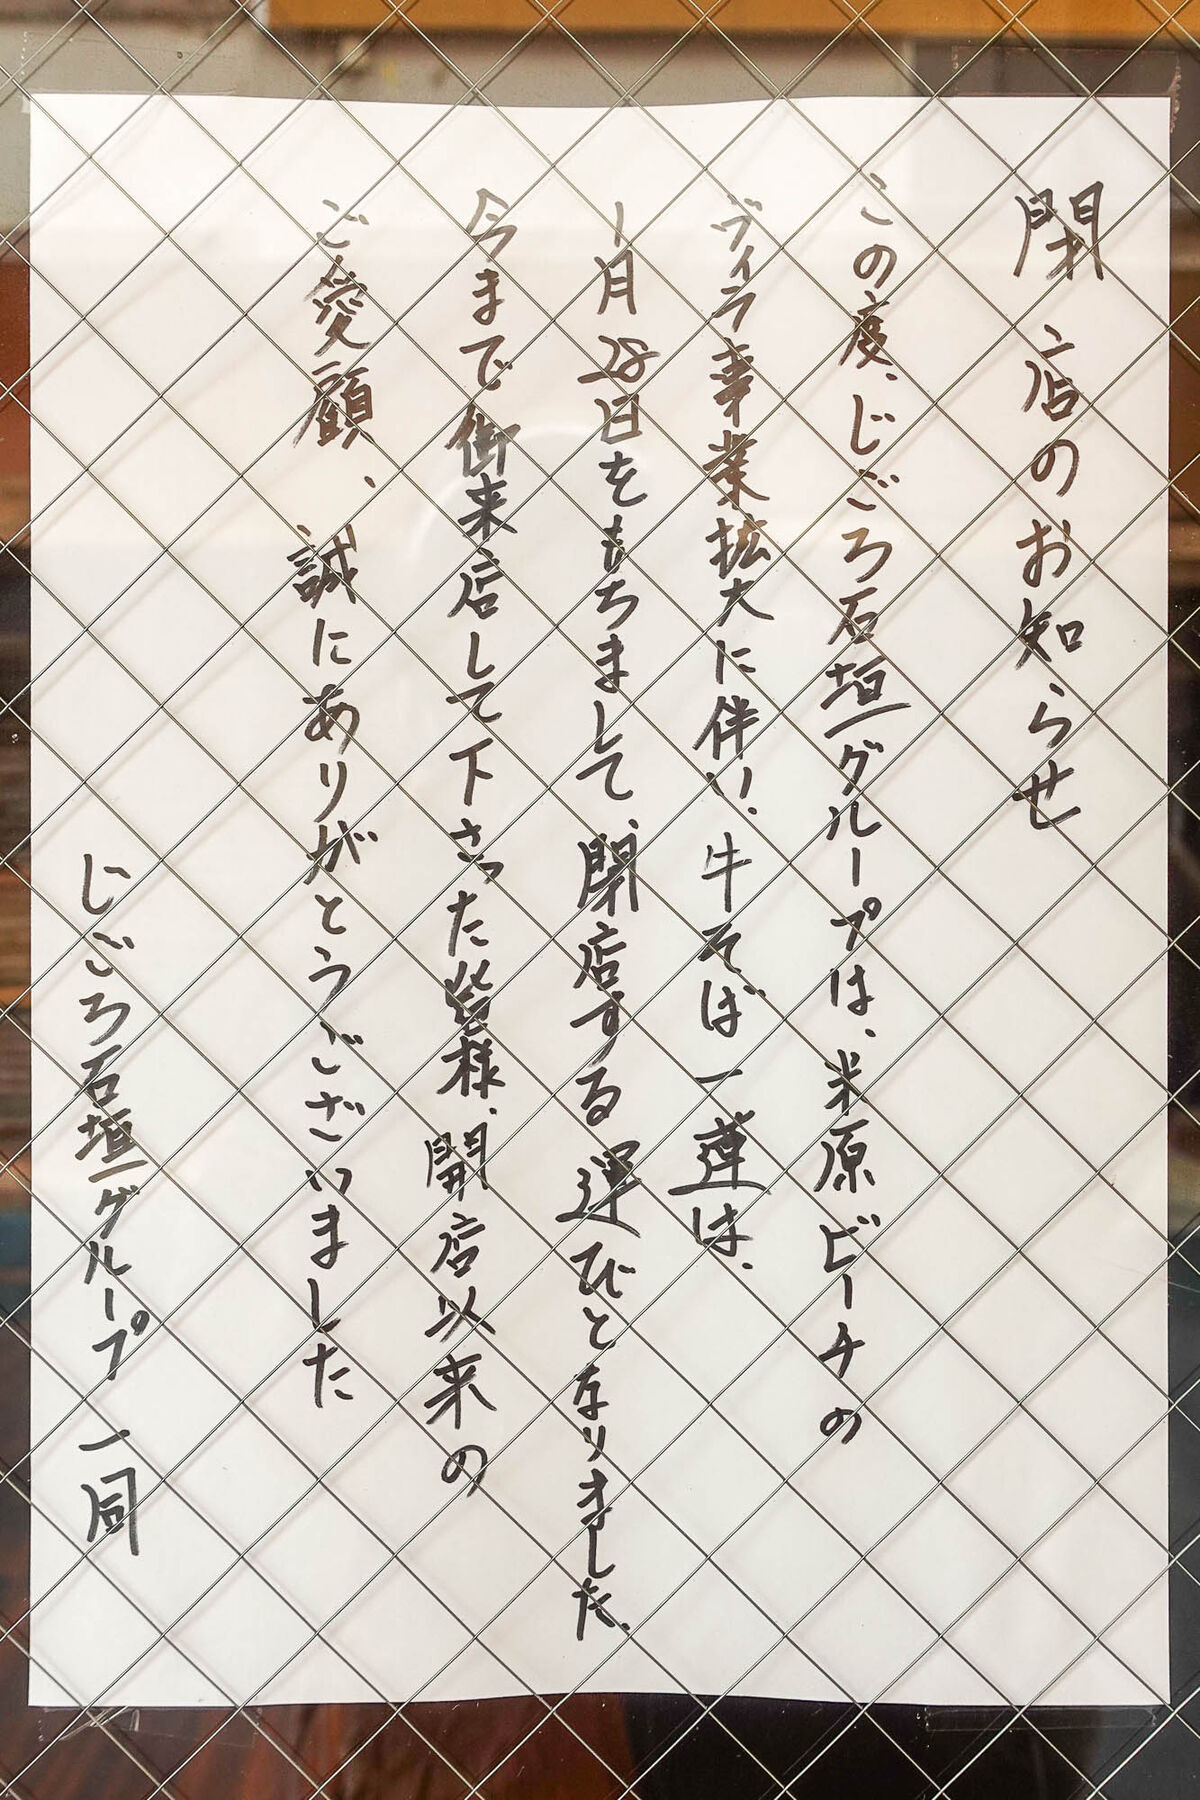 閉店のお知らせ
この度、じごろ石垣グループは、米原ビーチの
ヴィラ事業拡大に伴い、牛そば一遵は、
1月28日をもちまして、閉店する運びとなりました。
今まで御来店して下さった皆様、開店以来の
ご愛顧、誠にありがとうございました
じごろ石垣グループ 一同